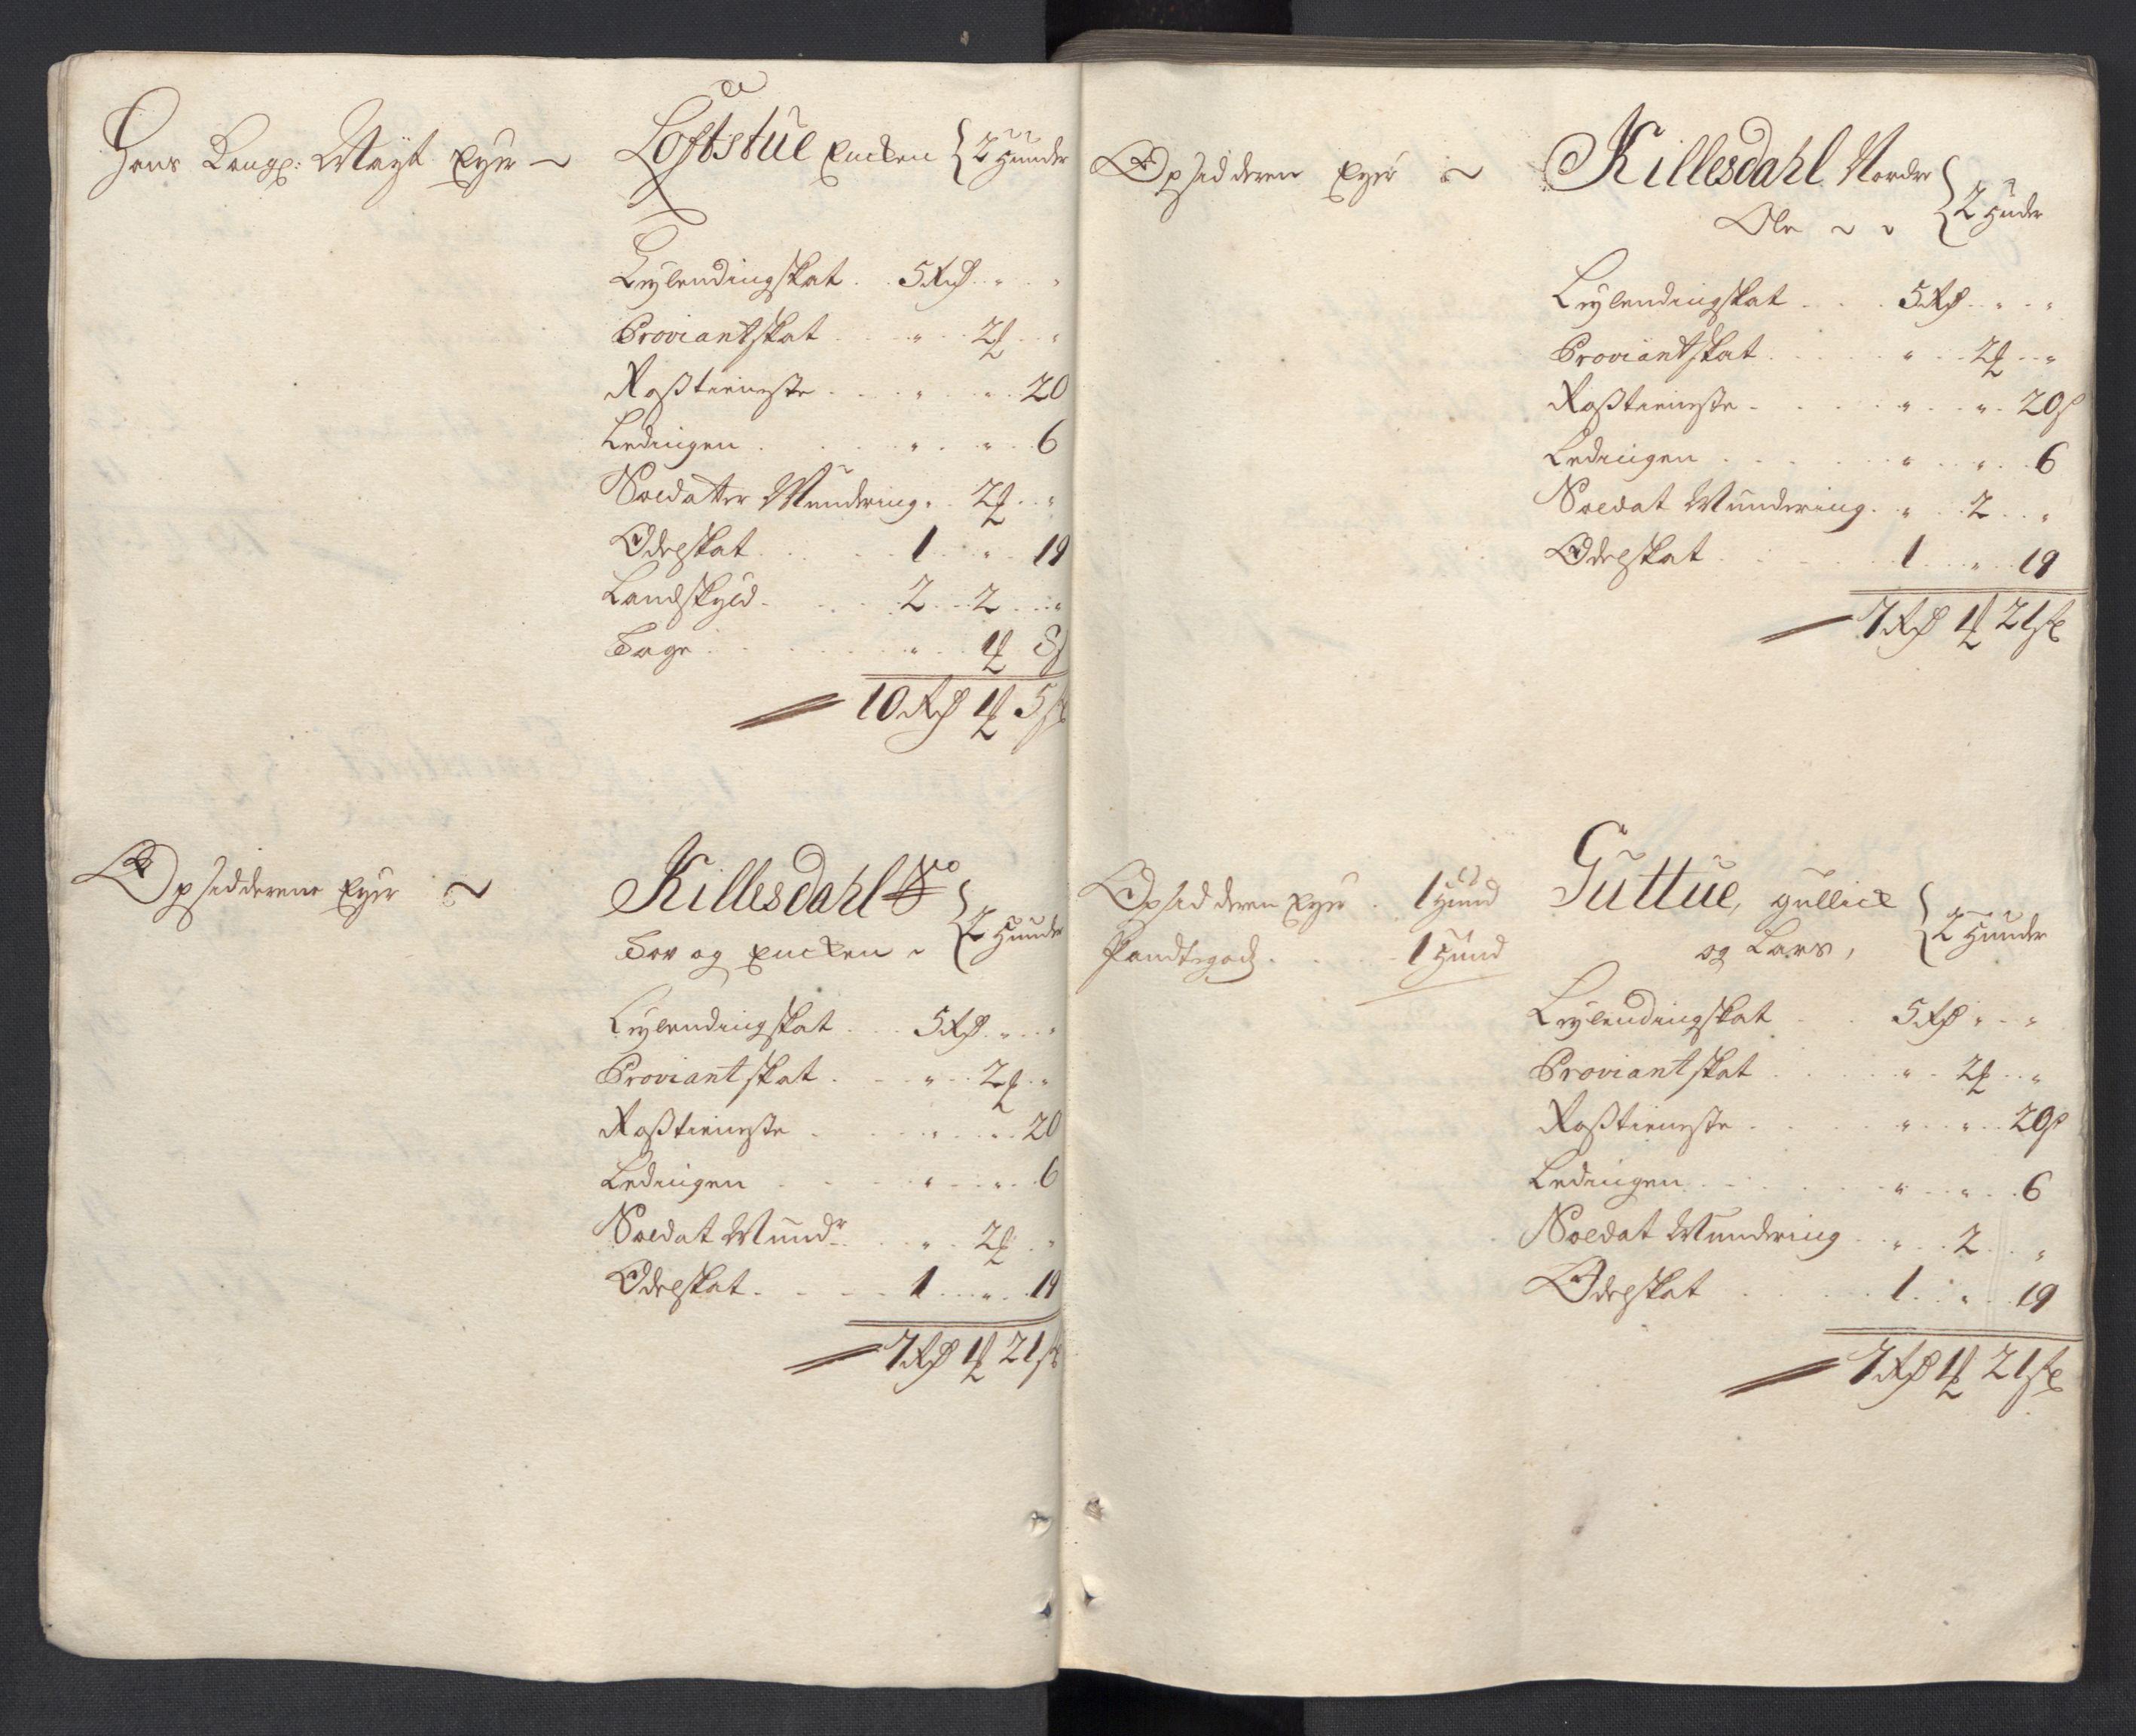 Hans Kongl: Mayt Eyer ~ Loftstue Encken { 2 Hunder
Leylendingskat . . 5 Rd " . "
Proviantskat . . . " . . 2 ¶ . . "
Rostieneste . . . " . . " . 20
Ledingen . . . " . . " . . 6
Soldatter Mundering . . 2 ¶ . . "
Odelskat . . . 1 . . " . . 19
Landskyld . . . 2 . . 2 . . "
Boge . . . " . . 1 ¶ 8
10 Rd 1 ¶ 5 s
Opsidderene Eyer ~ Killesdahl Sø
Tov og Encken ~ { 2 Hunder
Leylendingskat . . . 5 Rd . " . . "
Proviantskat . . . " . . 2 ¶ . "
Rostieneste . . . " . . " . 20
Ledingen . . . " . . " . . 6
Soldat Mundr . . " . . 2 ¶ . "
Odelskat . . . 1 . . " . . 19
7 Rd 1 ¶ 21 s
Opsidderen Eyer ~ Killesdahl Nordre
Ole ~ ~ { 2 Huder
Leylendingskat . . . 5 Rd . " . . "
Proviantskat . . . " . . 2 ¶ . . "
Rostieneste . . . " . . " . 20 s
Ledingen . . . " . . " . . 6
Soldat Mundering . . " . . 2 . . "
Odelskat . . . 1 . . " . . 19
7 Rd 1 ¶ 21 s
Opsidderen Eyer . 1 Hund Guttue, gullick
Pandtegods . . . 1 Hund og Lars, { 2 Hunder
Leylendingskat . . 5 Rd " . . "
Proviantskat . . . " . . 2 ¶ . . "
Rostieneste . . . " . . " . . 20 s
Ledingen . . . " . . " . . 6
Soldat Mundering . . " . . 2 . . "
Odelskat . . . 1 . . " . . 19
7 Rd 1 ¶ 21 s